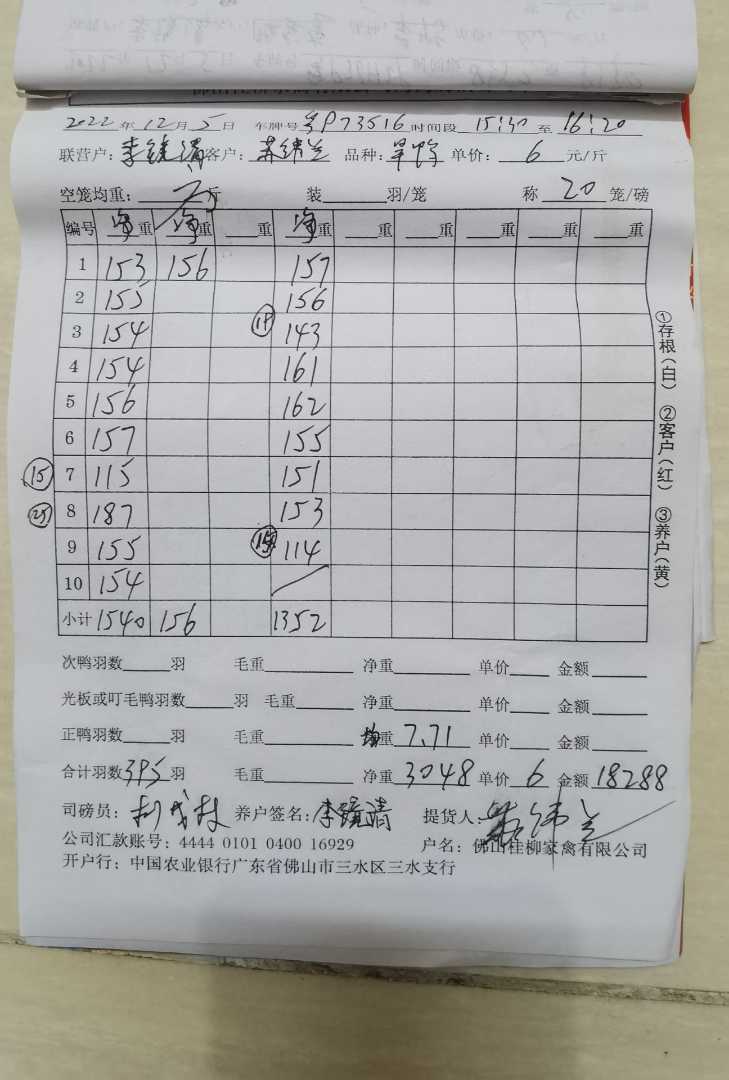 2022年12月5日 车牌号粤P73516时间段15:30至16:20
联营户:李镜清客户:苏伟兰 品种: 单价:6元/斤
空笼均重:斤 装羽/笼 称20笼/磅
编号 净重 净重 重 净重 重 重 重 重 重
1 153 156 157
2 155 156
3 154 18 143
4 154 161
5 156 162
6 157 155
15 7 115 151
25 8 187 153
9 155 15 114
10 154 /
小计 1540 156 1352
次鸭羽数羽 毛重 净重 单价 金额
光板或叮毛鸭羽数羽 毛重 净重 单价 金额
正鸭羽数羽 毛重 均重7.71 单价 金额
合计羽数395羽 毛重 净重3048 单价6 金额18288
司磅员: 养户签名:李镜清 提货人:苏伟兰
公司汇款账号:4444 0101 0400 16929 户名:佛山桂柳家禽有限公司
开户行:中国农业银行广东省佛山市三水区三水支行
①存根(白) ②客户(红) ③养户(黄)